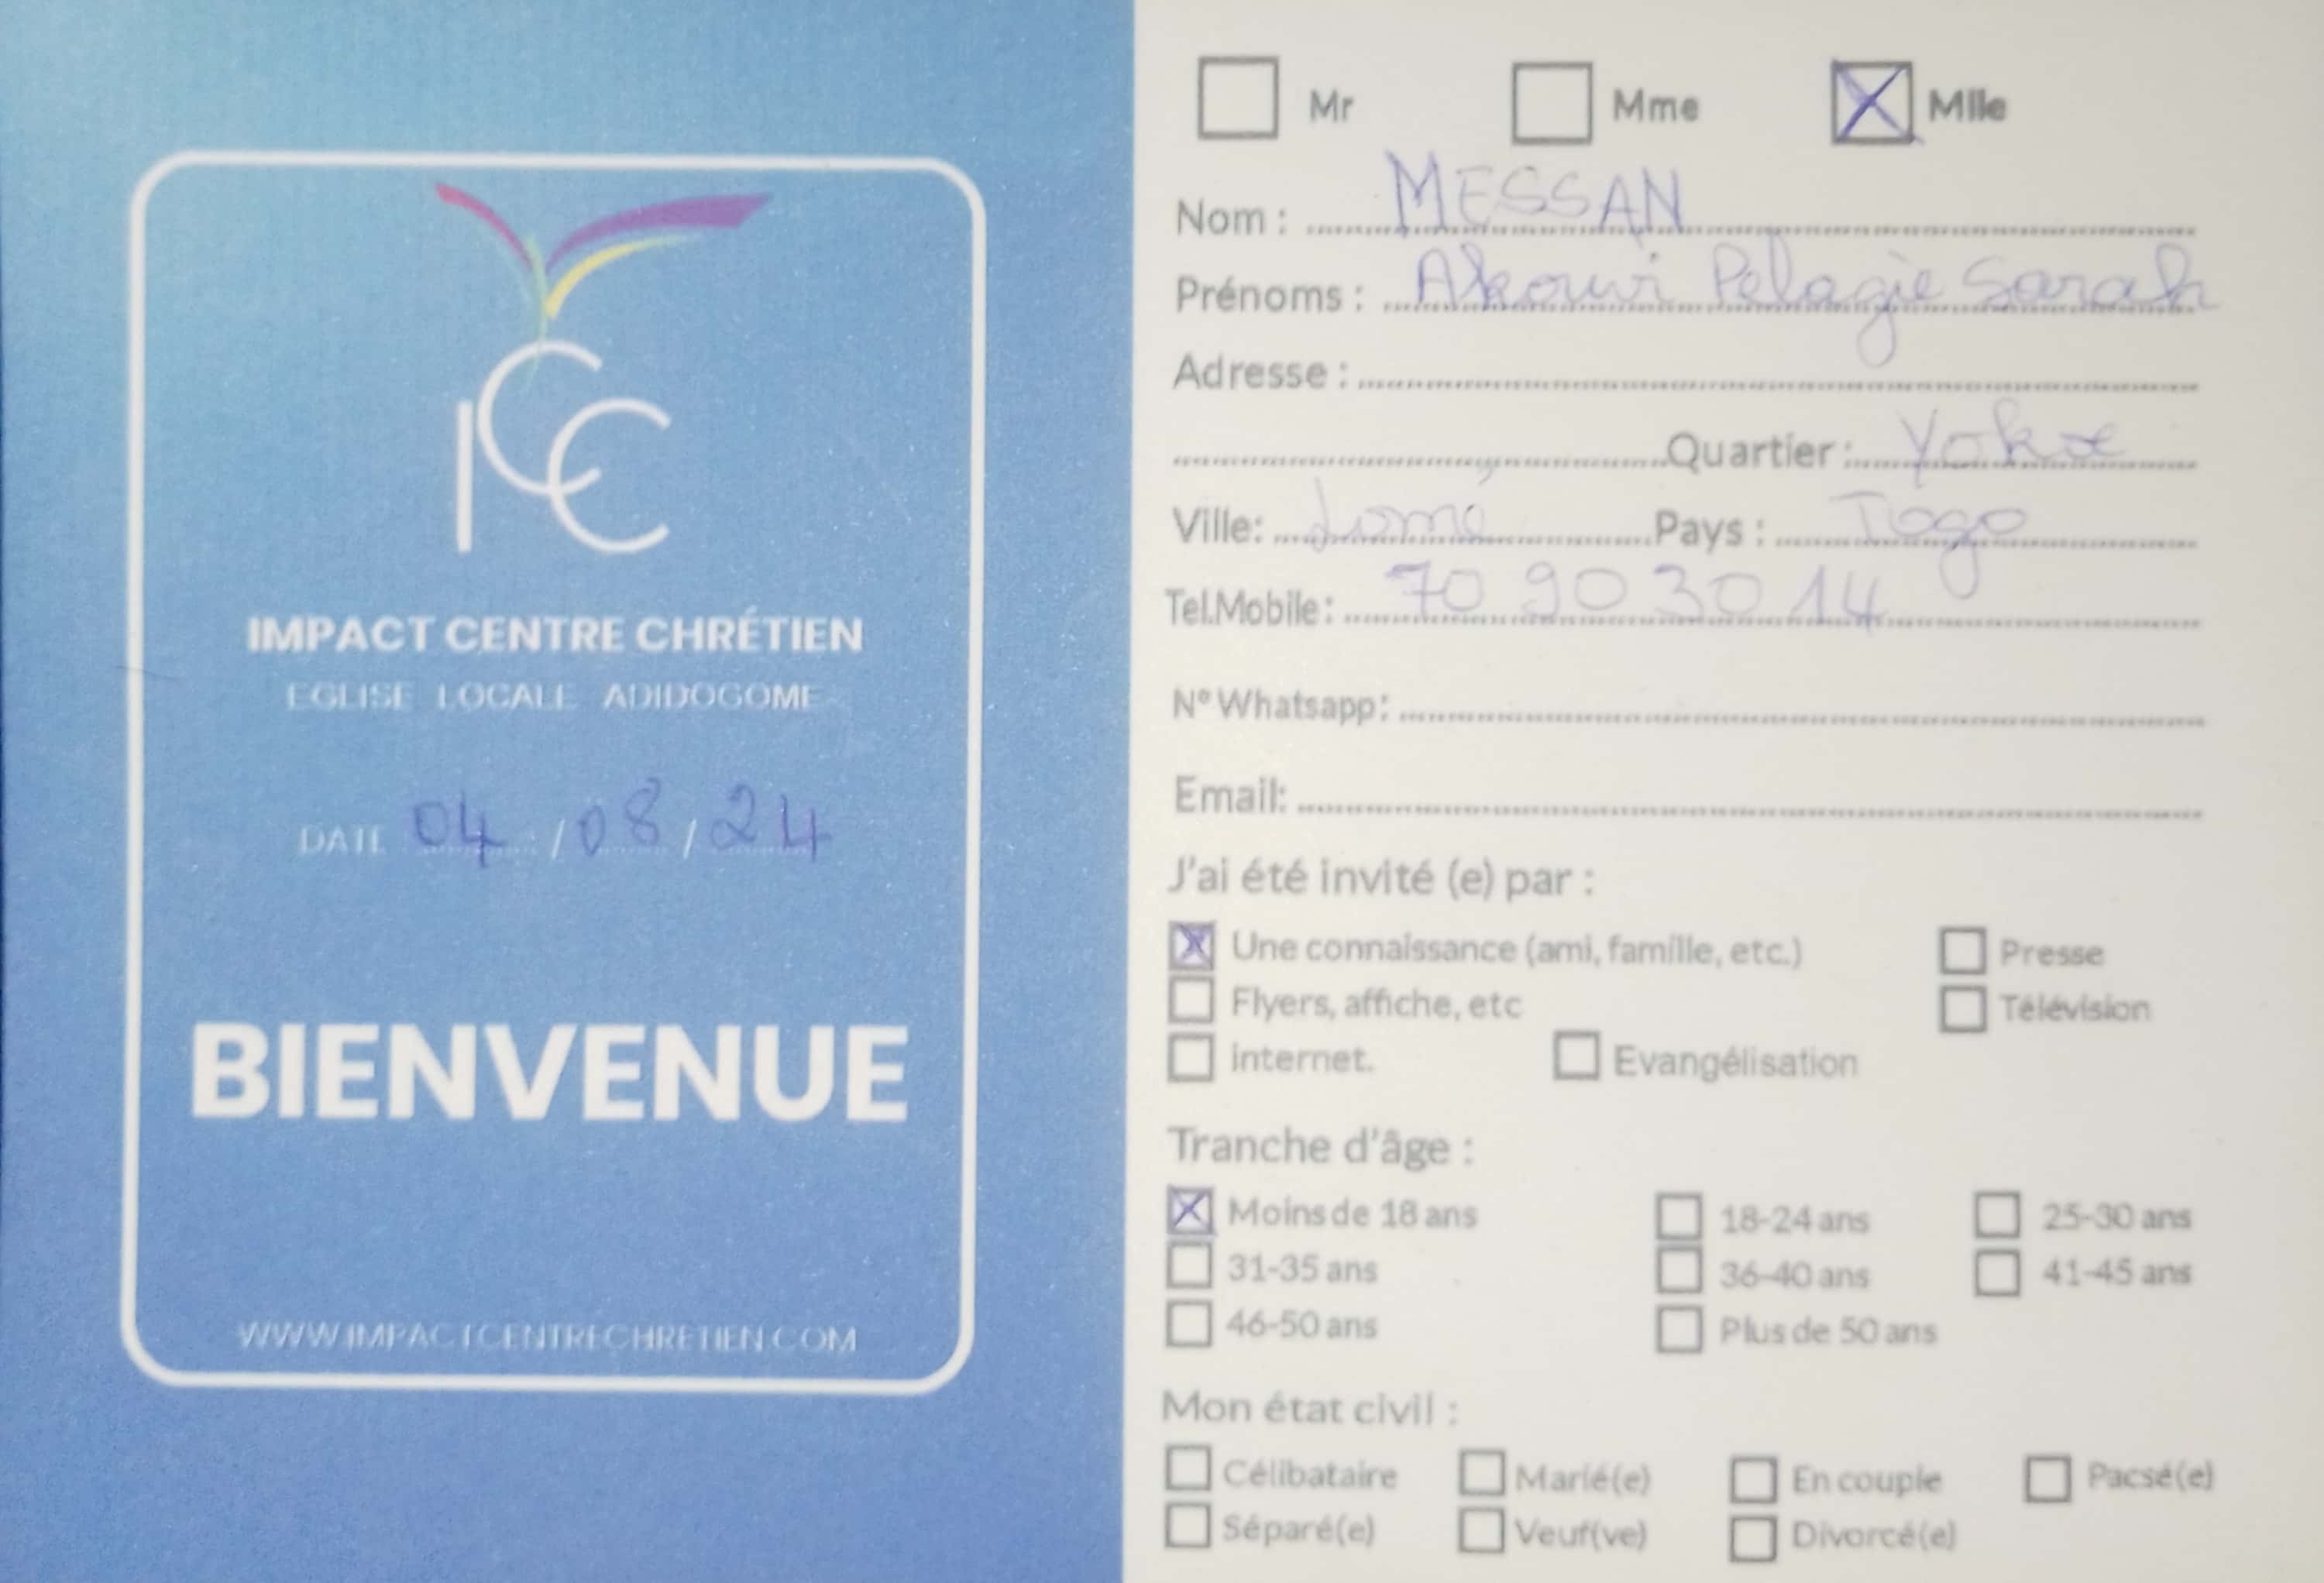 ICC
IMPACT CENTRE CHRÉTIEN
EGLISE LOCALE ADIDOGOME
DATE 04 / 08 / 24
BIENVENUE
WWW.IMPACTCENTRECHRETIEN.COM
Mr Mme Mlle
Nom : MESSAN
Prénoms : Akouvi Pélagie Sarah
Adresse :
Quartier :
Ville: Lomé Pays : Togo
Tel.Mobile: 70 90 30 14
N° Whatsapp:
Email:
J'ai été invité (e) par :
Une connaissance (ami, famille, etc.) Presse
Flyers, affiche, etc Télévision
internet. Evangélisation
Tranche d'âge :
Moins de 18 ans 18-24 ans 25-30 ans
31-35 ans 36-40 ans 41-45 ans
46-50 ans Plus de 50 ans
Mon état civil :
Célibataire Marié(e) En couple Pacsé(e)
Séparé(e) Veuf(ve) Divorcé(e)